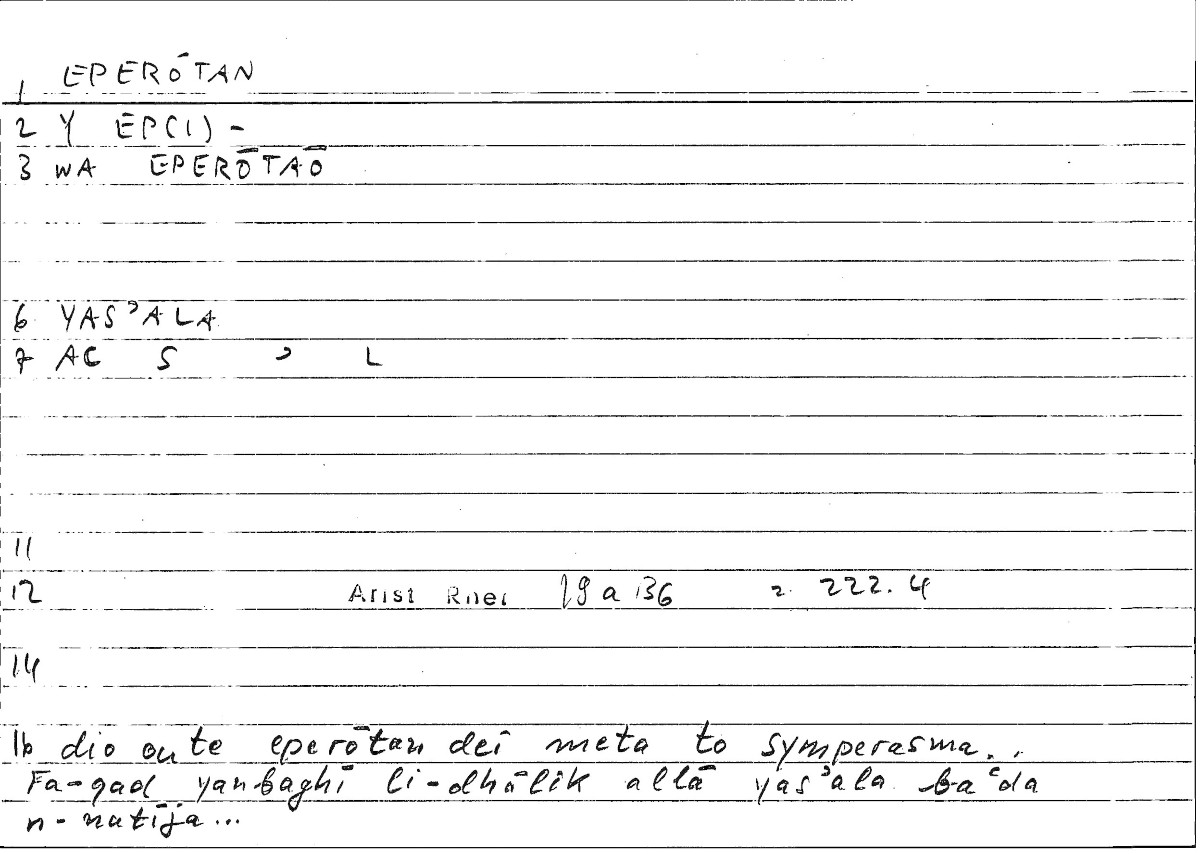 1 EPERŌTAN
2 Y EP(I) -
3 WA EPERŌTAŌ
6 YASʾALA
7 AC S ʾ L
11
12 Arist Rhet 19 a 36 2. 222.4
14
16 dio oute eperōtan dei meta to symperasma..
Fa-qad yanbaghī li-dhālik allā yasʾala baʿda
n-natīja...